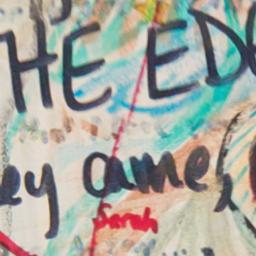 HE EDG
ey came,
Sarah